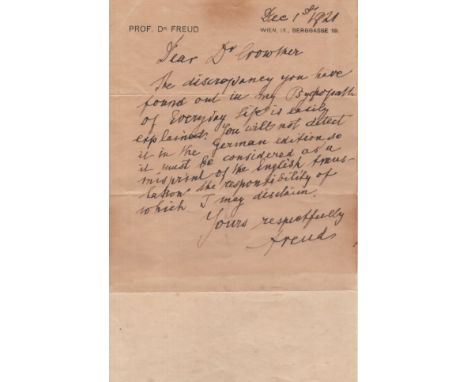 Dec 1st 1921
PROF. DR FREUD
WIEN, IX., BERGGASSE 19.
Dear Dr Crowther
The discrepancy you have
found out in my Psychopath
of Everyday Life is easily
explained. You will not detect
it in the German edition so
it must be considered as a
misprint of the English trans-
lation the responsibility of
which I may disclaim.
Yours respectfully
Freud